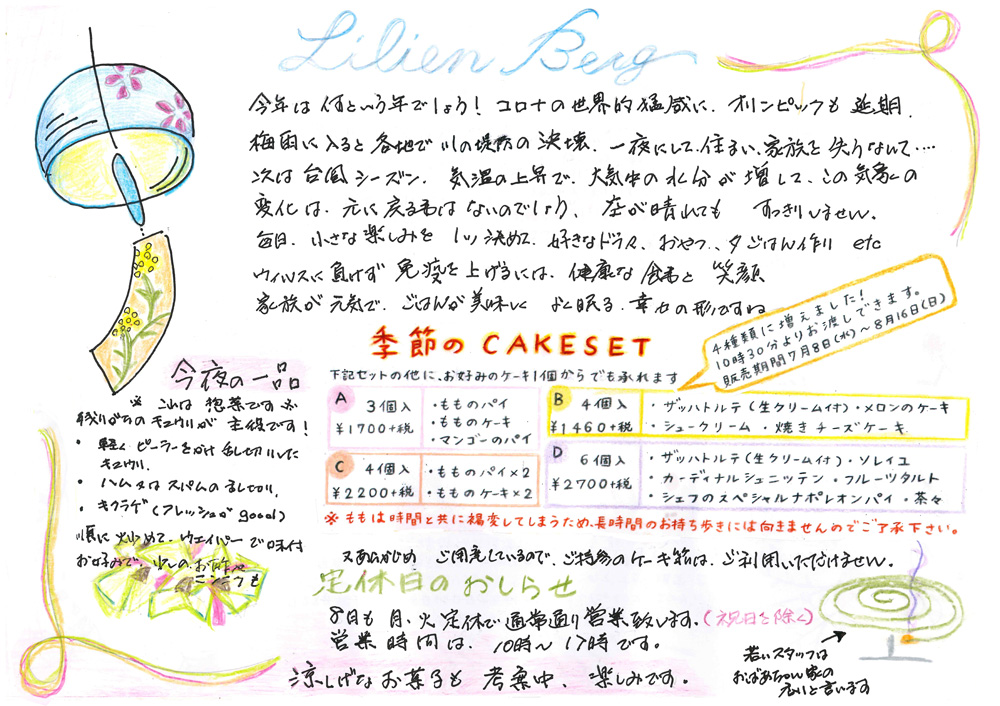 Lilien Berg
今年は何という年でしょう！コロナの世界的猛威に、オリンピックも延期、
梅雨に入ると各地で川の堤防の決壊、一夜にして住まい、家族を失うなんて‥‥
次は台風シーズン、気温の上昇で、大気中の水分が増して、この気象の
変化は、元に戻る事はないのでしょう、空が晴れても すっきりしません。
毎日、小さな楽しみを1ツ決めて、好きなドラマ、おやつ、夕ごはん作り etc
ウィルスに負けず 免疫を上げるには、健康な食事と笑顔
家族が元気で、ごはんが美味しく よく眠る、幸せの形ですね
4種類に増えました！
10時30分よりお渡しできます。
販売期間7月8日(水)〜8月16日(日)
季節のCAKESET
下記セットの他に、お好みのケーキ1個からでも承れます
A 3個入 ・もものパイ
¥1700+税 ・もものケーキ
・マンゴーのパイ
B 4個入 ・ザッハトルテ(生クリーム付)・メロンのケーキ
¥1460+税 ・シュークリーム ・焼きチーズケーキ
C 4個入 ・もものパイ×2
¥2200+税 ・もものケーキ×2
D 6個入 ・ザッハトルテ(生クリーム付)・ソレイユ
¥2700+税 ・カーディナルシュニッテン・フルーツタルト
・シェフのスペシャルナポレオンパイ・茶々
※ももは時間と共に褐変してしまうため、長時間のお持ち歩きには向きませんのでご了承下さい。
又あらかじめ ご用意しているので、ご持参のケーキ箱は、ご利用いただけません。
今夜の一品
※ これは惣菜です ※
残りがちのキュウリが主役です！
・軽くピーラーをかけ乱切りした
キュウリ、
・ハム又はスパムの乱切り、
・キクラゲ(フレッシュがgood)
順に炒めて、ウェイパーで味付
お好みで、少しのお酢や
こしょうも
定休日のおしらせ
8日も月、火定休で通常通り営業致します。(祝日を除く)
営業時間は、10時〜17時です。
涼しげなお菓子も考案中、楽しみです。
若いスタッフは
おばあちゃん家の
匂いと言います